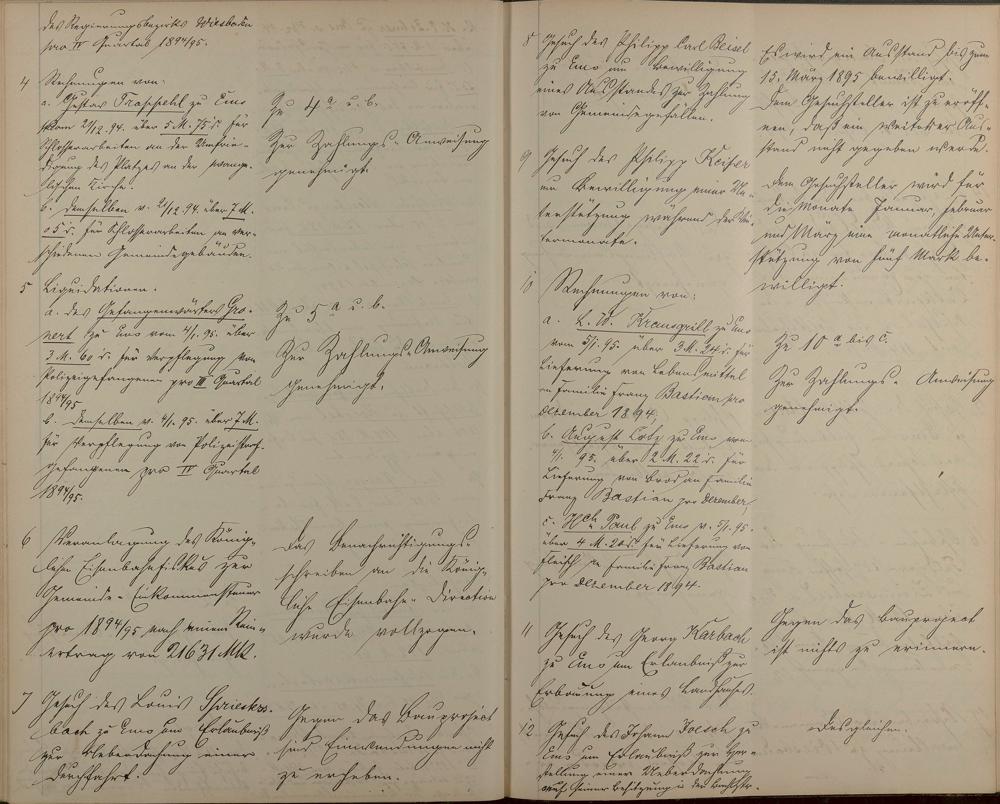 des Regierungsbezirks Wiesbaden
pro IV Quartal 1894/95.
4 Rechnungen von:
a. Gustav Trappehl zu Ems
vom 21/12. 94. über 5 M. 75 d. für
Schlosserarbeiten an der Umfrie-
digung des Platzes an der evange-
lischen Kirche.
b. demselben v. 21/12. 94. über 7 M.
05 d. für Schlosserarbeiten an ver-
schiedenen Gemeindegebäuden.
Zu 4 a u. b.
Zur Zahlungs-Anweisung
genehmigt.
5 Liquidationen.
a. des Gefangenwärters
zu Ems vom 4/1. 95. über
3 M. 60 d. für Verpflegung von
Polizeigefangenen pro III Quartal
1894/95
b. demselben v. 4/1. 95. über 7 M.
für Verpflegung von Polizeistraf-
gefangenen pro IV Quartal
1894/95.
Zu 5 a u. b.
Zur Zahlungs-Anweisung
genehmigt.
6 Veranlagung des König-
lichen Eisenbahnfiskus zur
Gemeinde-Einkommensteuer
pro 1894/95 nach einem Rein-
ertrag von 21631 Mk.
Das Benachrichtigungs-
schreiben an die König-
liche Eisenbahn-Direction
wurde vollzogen.
7 Gesuch des Louis Spriesters-
bach zu Ems um Erlaubniß
zur Ueberdachung einer
Durchfahrt.
Gegen das Bauproject
sind Einwendungen nicht
zu erheben.
8 Gesuch des Philipp Carl Beisel
zu Ems um Bewilligung
eines Ausstandes zur Zahlung
von Gemeindegefällen.
Es wird ein Ausstand bis zum
15. März 1895 bewilligt.
Dem Gesuchsteller ist zu eröff-
nen, daß ein weiterer Aus-
stand nicht gegeben werde.
9 Gesuch des Philipp Keifer
um Bewilligung einer Un-
terstützung während der Win-
termonate.
Dem Gesuchsteller wird für
die Monate Januar, Februar
und März eine monatliche Unter-
stützung von fünf Mark be-
willigt.
10 Rechnungen von:
a. L. W. Kranzgrill zu Ems
vom 5/1. 95 über 3 M. 24 d. für
Lieferung von Lebensmittel
an Familie Franz Bastian pro
Dezember 1894,
b. August zu Ems vom
4/1. 95. über 2 M. 22 d. für
Lieferung von Brod an Familie
Franz Bastian pro Dezember,
c. Hch Paul zu Ems v. 5/1. 95.
über 4 M. 20 d. für Lieferung von
Fleisch an Familie Franz Bastian
pro Dezember 1894.
Zu 10 a bis c.
Zur Zahlungs-Anweisung
genehmigt.
11 Gesuch des Georg Karbach
zu Ems um Erlaubniß zur
Erbauung eines Landhauses.
Gegen das Bauproject
ist nichts zu erinnern.
12 Gesuch des Johann Josch zu
Ems um Erlaubniß zur Her-
stellung einer Ueberdachung
auf seiner Besitzung in der
Desgleichen.